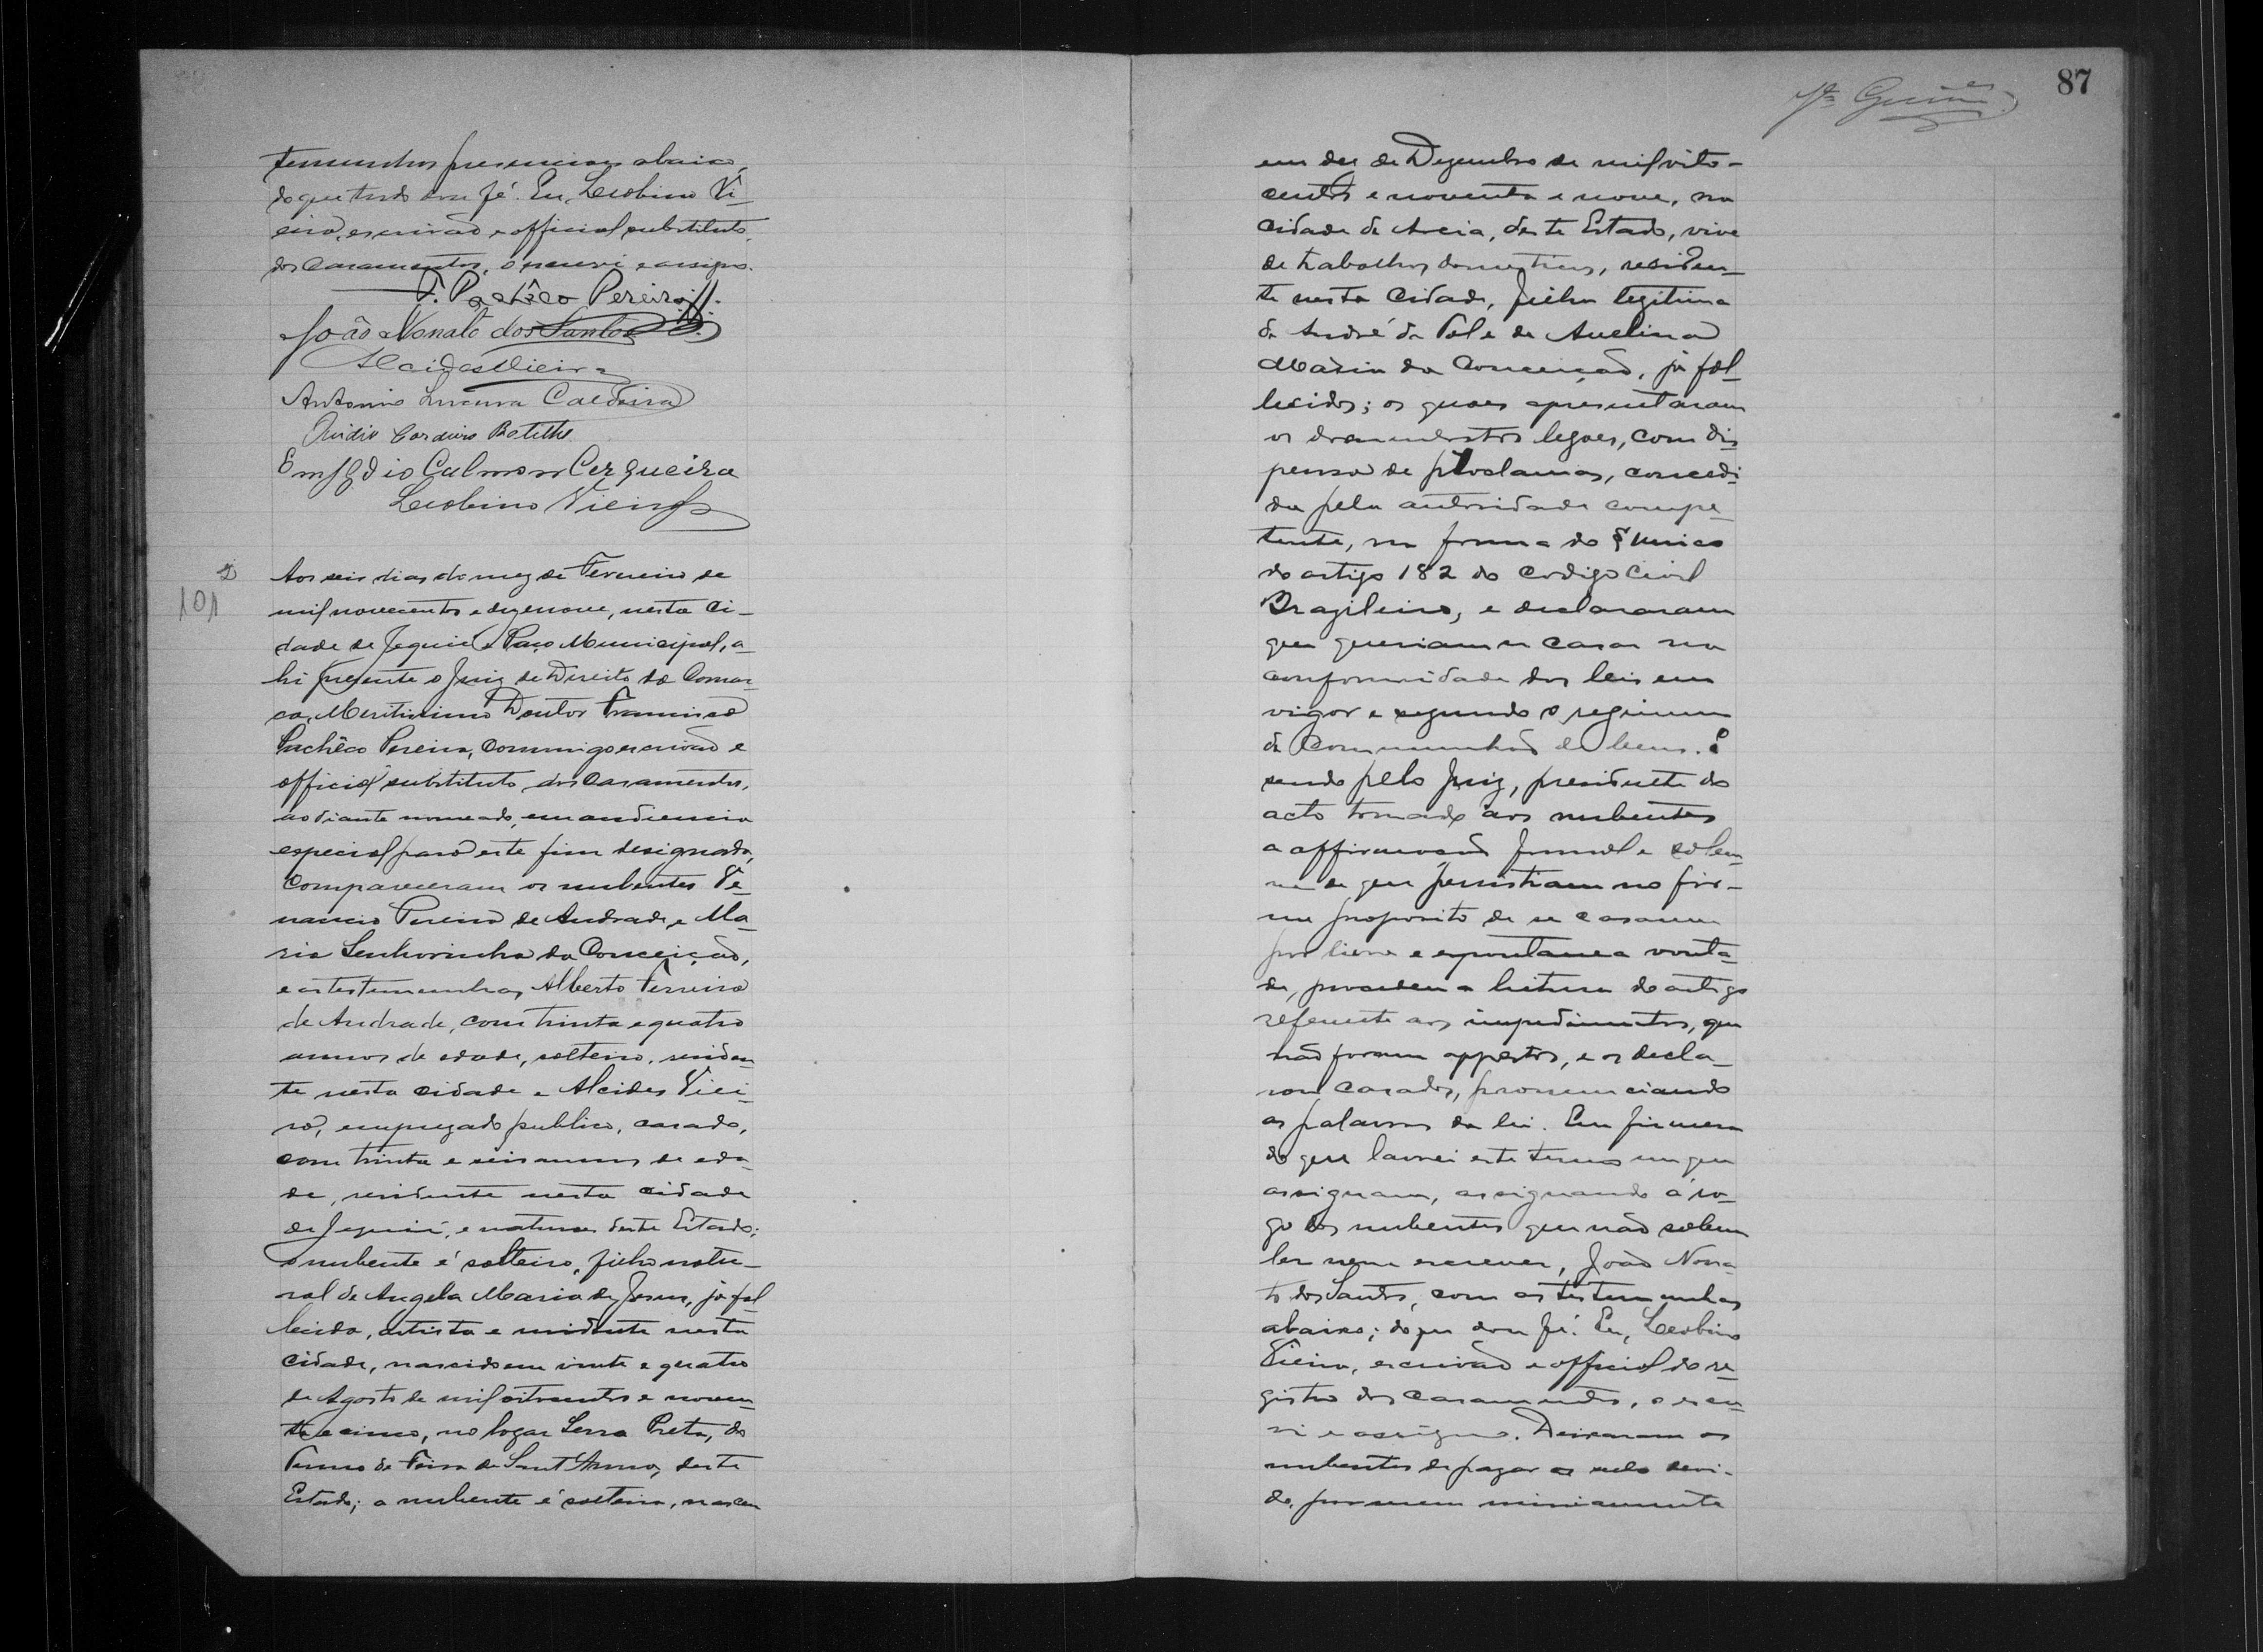 temunhas presenciaes abaixo,
do que tudo dou fé. Eu, Leobino Vi-
eira, escrivão e official substituto
dos casamentos, o escrevi e assigno.
F. Pachêco Pereira
João Nonato dos Santos
Alcides Vieira
Antonio Lucena Caldeira
Ovidio Cordeiro Botelho
Emygdio Calmon Cerqueira
Leobino Vieira
101
Aos seis dias do mez de Fevereiro de
mil novecentos e dezenove, nesta Ci-
dade de Jequié e Paço Municipal, a-
hi presente o Juiz de Direito da Comar-
ca, Meritissimo Doutor Francisco
Pachêco Pereira, commigo escrivão e
official substituto dos Casamentos,
ao diante nomeado, em audiencia
especial para este fim designada,
compareceram os nubentes Ve-
nancio Pereira de Andrade e Ma-
ria Senhorinha da Conceição,
e as testemunhas Alberto Ferreira
de Andrade, com trinta e quatro
annos de edade, solteiro, residen-
te nesta cidade e Alcides Viei-
ra, empregado publico, casado,
com trinta e seis annos de eda-
de, residente nesta cidade
de Jequié, e naturaes deste Estado;
o nubente é solteiro, filho natu-
ral de Angela Maria de Jesus, já fal-
lecida, artista e residente nesta
cidade, nascido em vinte e quatro
de Agosto de mil oitocentos e noven-
ta e cinco, no logar Serra Preta, do
Termo de Feira de Sant'Anna, deste
Estado; a nubente é solteira, nasceu
87
em dez de Dezembro de mil oito-
centos e noventa e nove, na
cidade de Areia, deste Estado, vive
de trabalhos domesticos, residen-
te nesta Cidade, filha legitima
de André de Tal e de Avelina
Maria da Conceição, já fal-
lecidos; os quaes apresentaram
os documentos legaes, com dis
pensa de proclamas, concedi-
da pela autoridade compe-
tente, na forma do § unico
do artigo 182 do Codigo Civil
Brazileiro, e declararam
que queriam se casar na
conformidade das leis em
vigor e segundo o regimem
da Communhão de bens. E
sendo pelo Juiz, presidente do
acto tomado aos nubentes
a affirmação formal e solem-
ne de que persistiam no fir-
me proposito de se casarem
por livre e espontanea vonta-
de, procedeu a leitura do artigo
referente aos impedimentos, que
não foram oppostos, e os decla-
rou casados, pronunciando
as palavras da lei. Em firmeza
do que lavrei este termo em que
assignam, assignando á ro-
go dos nubentes que não sabem
ler nem escrever, João Nona-
to dos Santos, com as testemunhas
abaixo; do que dou fé. Eu, Leobino
Vieira, escrivão e official do re-
gistro dos casamentos, o escre-
vi e assigno. Deixaram os
nubentes de pagar o sello devi-
do, por serem